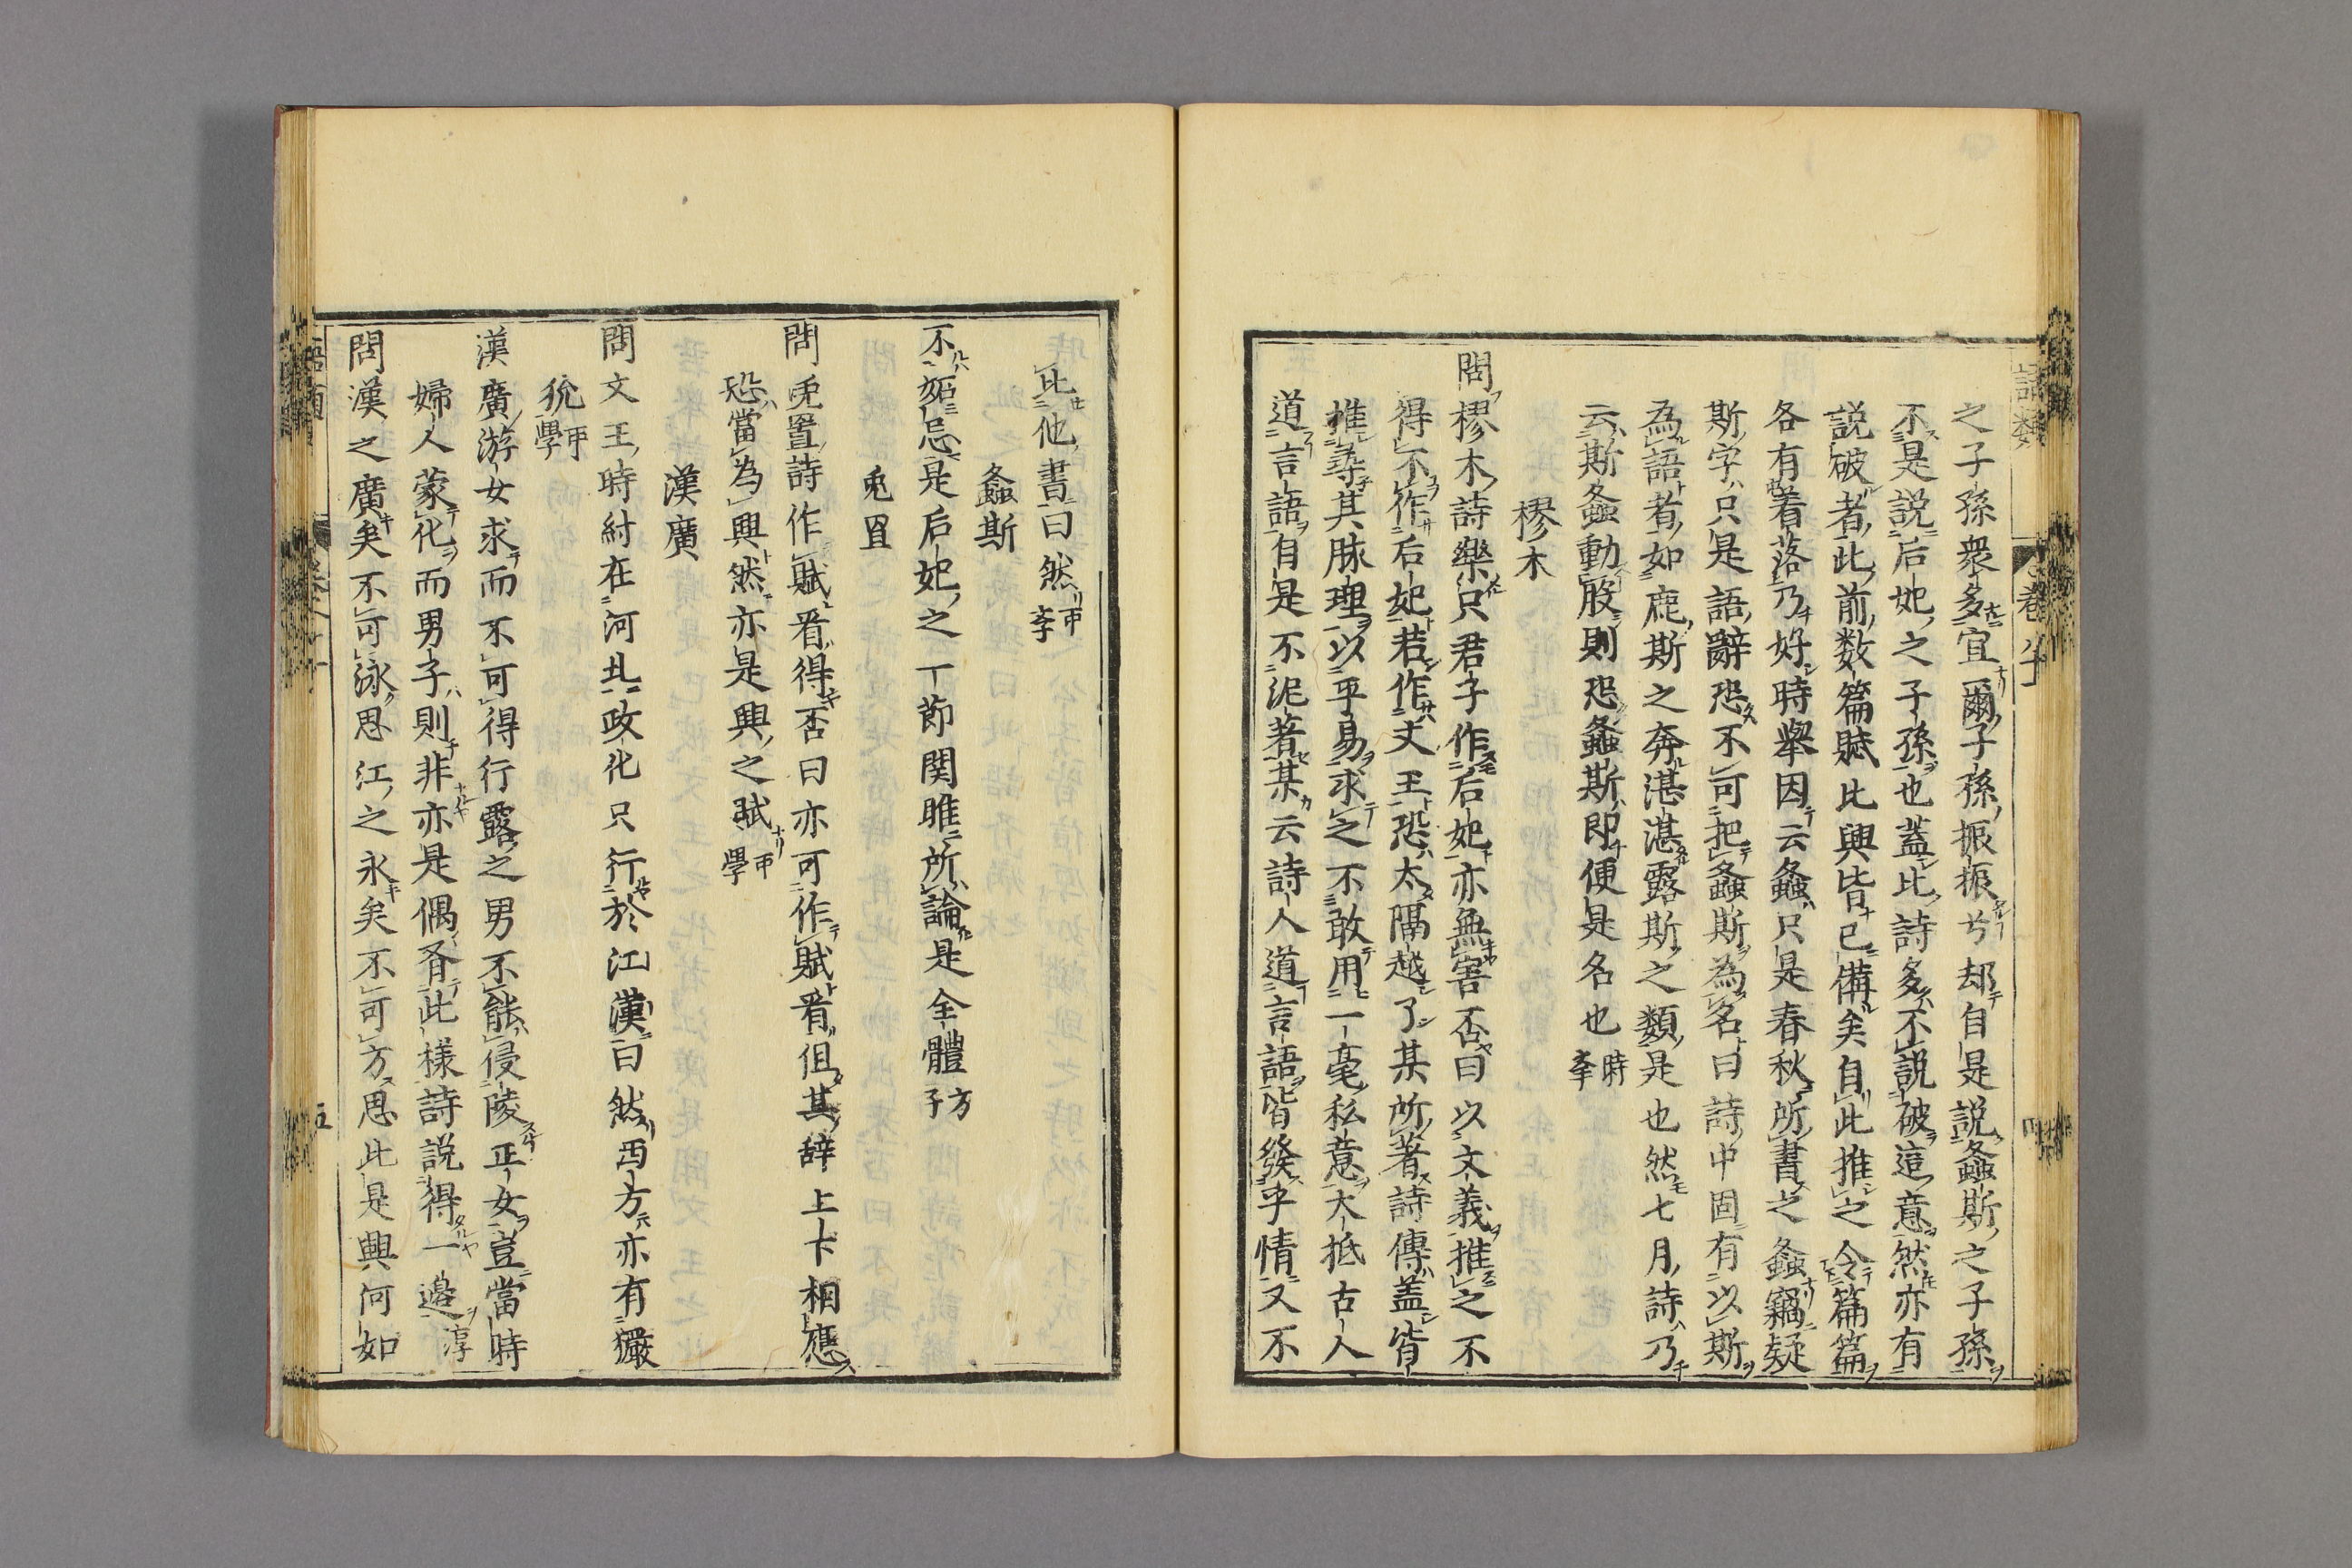 語類
卷八十
四
之子孫衆多宜爾子孫振振兮却自是説螽斯之子孫
不是説后妃之子孫也蓋比詩多不説破這意然亦有
説破者此前数篇賦比興皆已備矣自此推之令篇篇
各有着落乃好時舉因云螽只是春秋所書之螽竊疑
斯字只是語辭恐不可把螽斯為名曰詩中固有以斯
為語者如鹿斯之奔湛湛露斯之類是也然七月詩乃
云斯螽動股則恐螽斯即便是名也時
舉
樛木
問樛木詩樂只君子作后妃亦無害否曰以文義推之不
得不作后妃若作文王恐太隔越了某所著詩傳蓋皆
推尋其脉理以平易求之不敢用一毫私意大抵古人
道言語自是不泥著某云詩人道言語皆發乎情又不
比他書曰然可
學
螽斯
不妬忌是后妃之一節関雎所論是全體方
子
兎罝
問兎罝詩作賦看得否曰亦可作賦看但其辞上下相應
恐當為興然亦是興之賦可
學
漢廣
問文王時紂在河北政化只行於江漢曰然西方亦有玁
狁可
學
漢廣游女求而不可得行露之男不能侵陵正女豈當時
婦人蒙化而男子則非亦是偶有此様詩説得一邊淳
問漢之廣矣不可泳思江之永矣不可方思此是興何如
語類
五